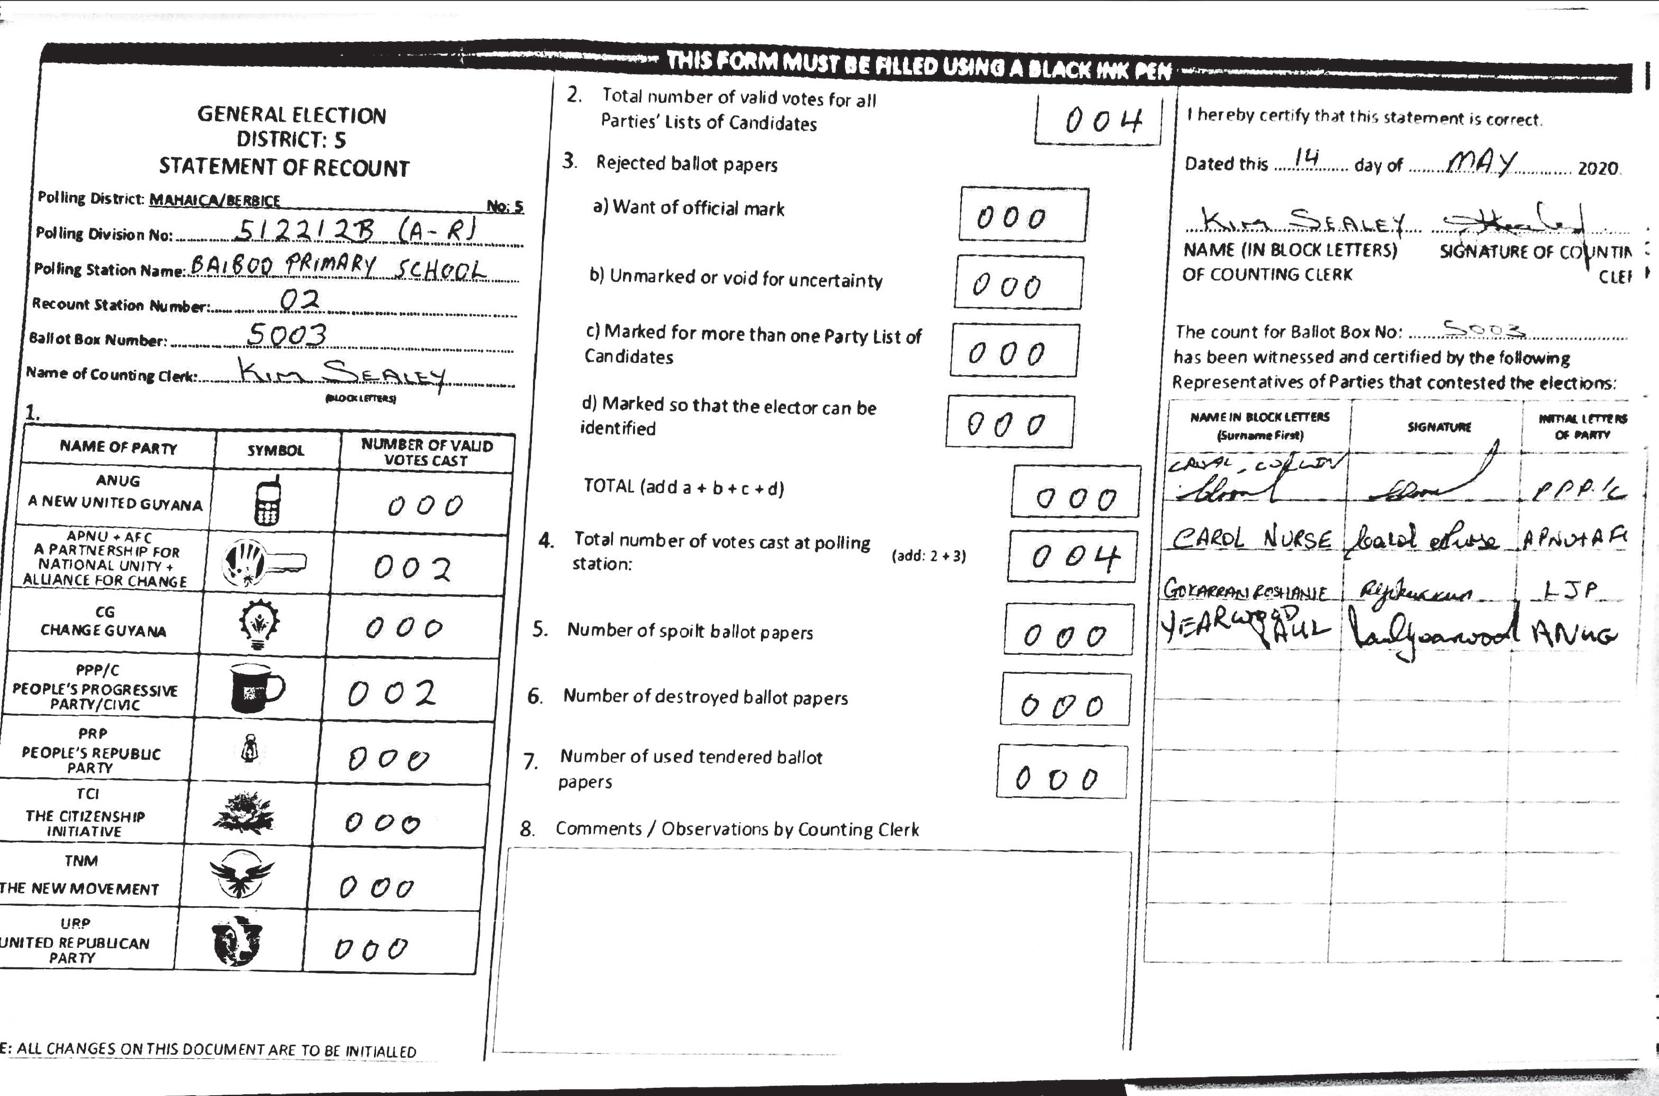 THIS FORM MUST BE FILLED USING A BLACK INK PEN
GENERAL ELECTION
DISTRICT: 5
STATEMENT OF RECOUNT
Polling District: MAHAICA/BERBICE No: 5
Polling Division No: 512212B (A-R)
Polling Station Name: BAIBOO PRIMARY SCHOOL
Recount Station Number: 02
Ballot Box Number: 5003
Name of Counting Clerk: KIM SEALEY
(BLOCK LETTERS)
1.
NAME OF PARTY SYMBOL NUMBER OF VALID VOTES CAST
ANUG
A NEW UNITED GUYANA 000
APNU + AFC
A PARTNERSHIP FOR
NATIONAL UNITY +
ALLIANCE FOR CHANGE 002
CG
CHANGE GUYANA 000
PPP/C
PEOPLE'S PROGRESSIVE
PARTY/CIVIC 002
PRP
PEOPLE'S REPUBLIC
PARTY 000
TCI
THE CITIZENSHIP
INITIATIVE 000
TNM
THE NEW MOVEMENT 000
URP
UNITED REPUBLICAN
PARTY 000
E: ALL CHANGES ON THIS DOCUMENT ARE TO BE INITIALLED
2. Total number of valid votes for all
Parties' Lists of Candidates 004
3. Rejected ballot papers
a) Want of official mark 000
b) Unmarked or void for uncertainty 000
c) Marked for more than one Party List of
Candidates 000
d) Marked so that the elector can be
identified 000
TOTAL (add a + b + c + d) 000
4. Total number of votes cast at polling
station: (add: 2 + 3) 004
5. Number of spoilt ballot papers 000
6. Number of destroyed ballot papers 000
7. Number of used tendered ballot
papers 000
8. Comments / Observations by Counting Clerk
I hereby certify that this statement is correct.
Dated this 14 day of MAY 2020.
KIM SEALEY
NAME (IN BLOCK LETTERS) SIGNATURE OF COUNTIN
OF COUNTING CLERK CLEF
The count for Ballot Box No: 5003
has been witnessed and certified by the following
Representatives of Parties that contested the elections:
NAME IN BLOCK LETTERS SIGNATURE INITIAL LETTERS
(Surname First) OF PARTY
PPP/C
CAROL NURSE Carol Nurse APNU+AF
GOKARRAN ROSHANIE LJP
YEARWOOD PAUL Paul Yearwood ANUG